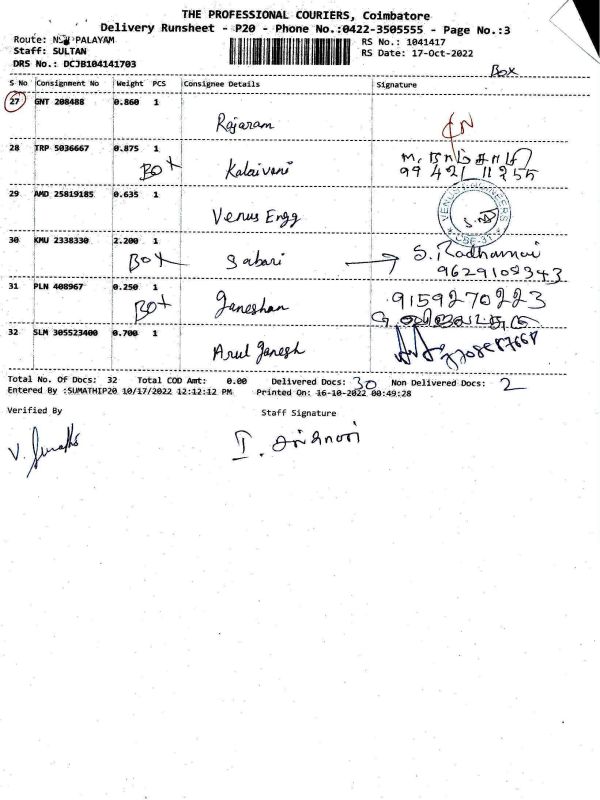 THE PROFESSIONAL COURIERS, Coimbatore
Delivery Runsheet - P20 - Phone No.:0422-3505555 - Page No.:3
Route: PALAYAM RS No.: 1041417
Staff: SULTAN RS Date: 17-Oct-2022
DRS No.: DCJB104141703
Box
S No Consignment No Weight PCS Consignee Details Signature
27 GNT 208488 0.860 1
Rajaram
28 TRP 5036667 0.875 1
BOX Kalaivani
99 421 11255
29 AMD 25819185 0.635 1
Venus Engg
VENUS ENGINEERS
CBE-31
30 KMU 2338330 2.200 1
BOX Sabari S. Radhamai
9629108343
31 PLN 408967 0.250 1
BOX Ganeshan 9159270223
32 SLM 305523400 0.700 1
Arul Ganesh
Total No. Of Docs: 32 Total COD Amt: 0.00 Delivered Docs: 30 Non Delivered Docs: 2
Entered By :SUMATHIP20 10/17/2022 12:12:12 PM Printed On: 16-10-2022 00:49:28
Verified By Staff Signature